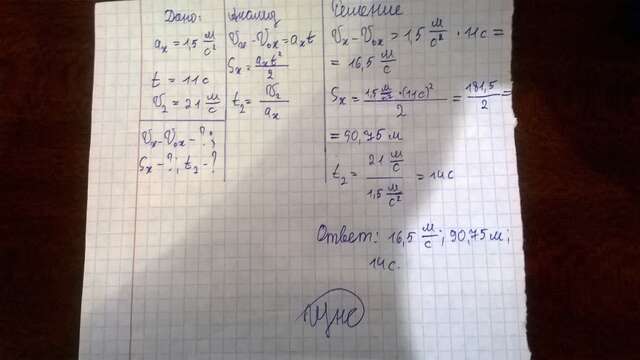 Дано:
aₓ = 1,5 м/с²
t = 11 с
v₂ = 21 м/с
vₓ - v₀ₓ - ?;
Sₓ - ?; t₂ - ?
Анализ
vₓ - v₀ₓ = aₓt
Sₓ = aₓt²/2
t₂ = v₂/aₓ
Решение
vₓ - v₀ₓ = 1,5 м/с² · 11 с =
= 16,5 м/с
Sₓ = 1,5 м/с² · (11 с)²/2 = 181,5/2 =
= 90,75 м
t₂ = 21 м/с / 1,5 м/с² = 14 с
Ответ: 16,5 м/с; 90,75 м;
14 с.